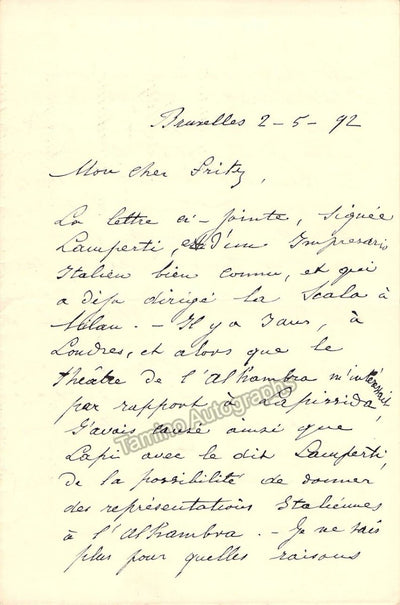 Bruxelles 2-5-92
Mon cher Fritz,
La lettre ci-jointe, signée
Lamperti, est d'un Impresario
Italien bien connu, et qui
a déjà dirigé la Scala à
Milan. - Il y a 3 ans, à
Londres, et alors que le
théâtre de l'Alhambra m'intéressait
par rapport à Lapissida,
j'avais causé ainsi que
Lapi avec le dit Lamperti,
de la possibilité de donner
des représentations Italiennes
à l'Alhambra. - Je ne sais
plus pour quelles raisons
Tamino Autographs